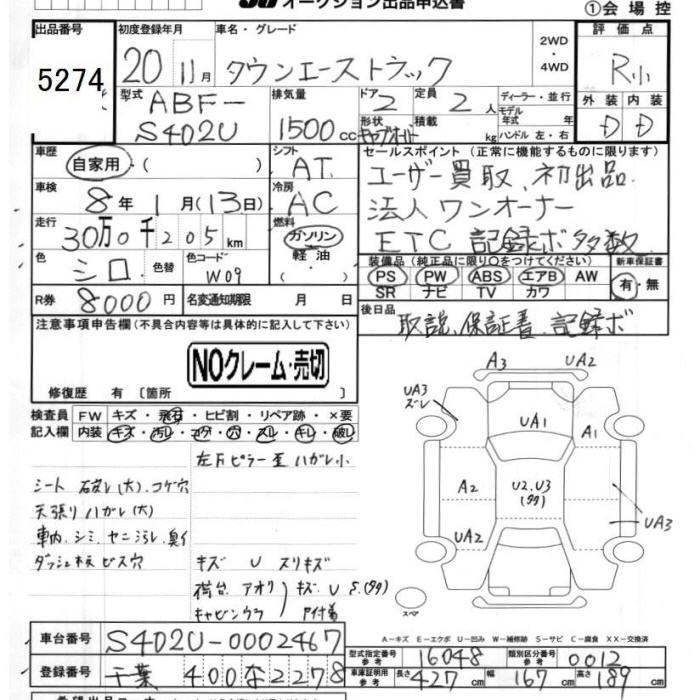 オークション出品申込書
①会場控
出品番号
5274
初度登録年月
20 11月
車名・グレード
タウンエーストラック
2WD
4WD
評価点
R小
外装 内装
D D
型式
ABF-
S402U
排気量
1500cc
ドア
2
定員
2人
形状
積載
kg
ディーラー・並行
モデル
年式 年
ハンドル 左・右
車歴
自家用・( )
シフト
AT
車検
8年 1月(13日)
冷房
AC
走行
30万0千205km
燃料
ガソリン
軽油
( )
色
シロ
色替
色コード
W09
R券
8000円
名変通知期限 月 日
セールスポイント (正常に機能するものに限ります)
ユーザー買取、初出品
法人ワンオーナー
ETC 記録ボ多数
装備品(純正品に限り○をつけてください)
PS PW ABS エアB AW
SR ナビ TV カワ
新車保証書
有・無
後日品
取説、保証書、記録ボ
注意事項申告欄(不具合内容等は具体的に記入して下さい)
NOクレーム・売切
修復歴 有 〔箇所
検査員
記入欄
FW キズ・飛石・ヒビ割・リペア跡・×要
内装 キズ・汚レ・コゲ・穴・スレ・キレ・破レ
左Fピラー 至 ハガレ小
シート 破レ(大)、コゲ穴
天張りハガレ(大)
車内、シミ、ヤニ汚レ、臭イ
ダッシュ板 ビス穴
キズ U スリキズ
荷台 アオリ
キャビンウラ
キズ U S(多々)
P付着
A3
UA2
UA3
ズレ
UA1
A1
A2
U2.U3
(多々)
UA2
UA3
スペア
A-キズ E-エクボ U-凹み W-補修跡 S-サビ C-腐食 XX-交換済
車台番号
S402U-0002467
登録番号
千葉 400 な2278
型式指定番号
参考
16048
類別区分番号
参考
0012
車庫証明用
参考
長さ
427cm
幅
167cm
高さ
189cm